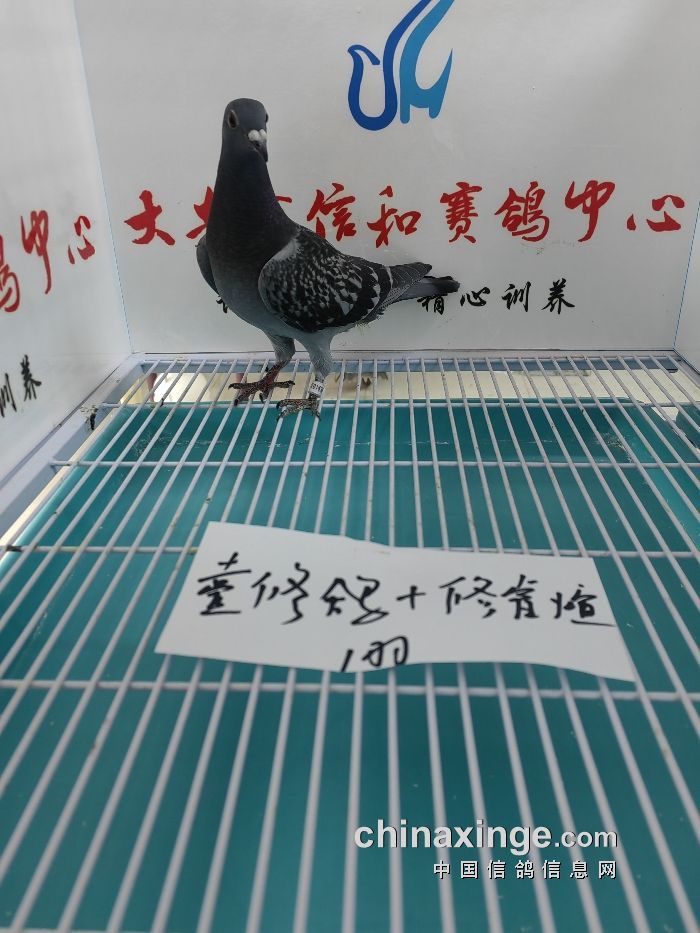 中心
训养
信和赛鸽中心
精心训养
修鸽+修育煊
1羽
chinaxinge.com
中国信鸽信息网